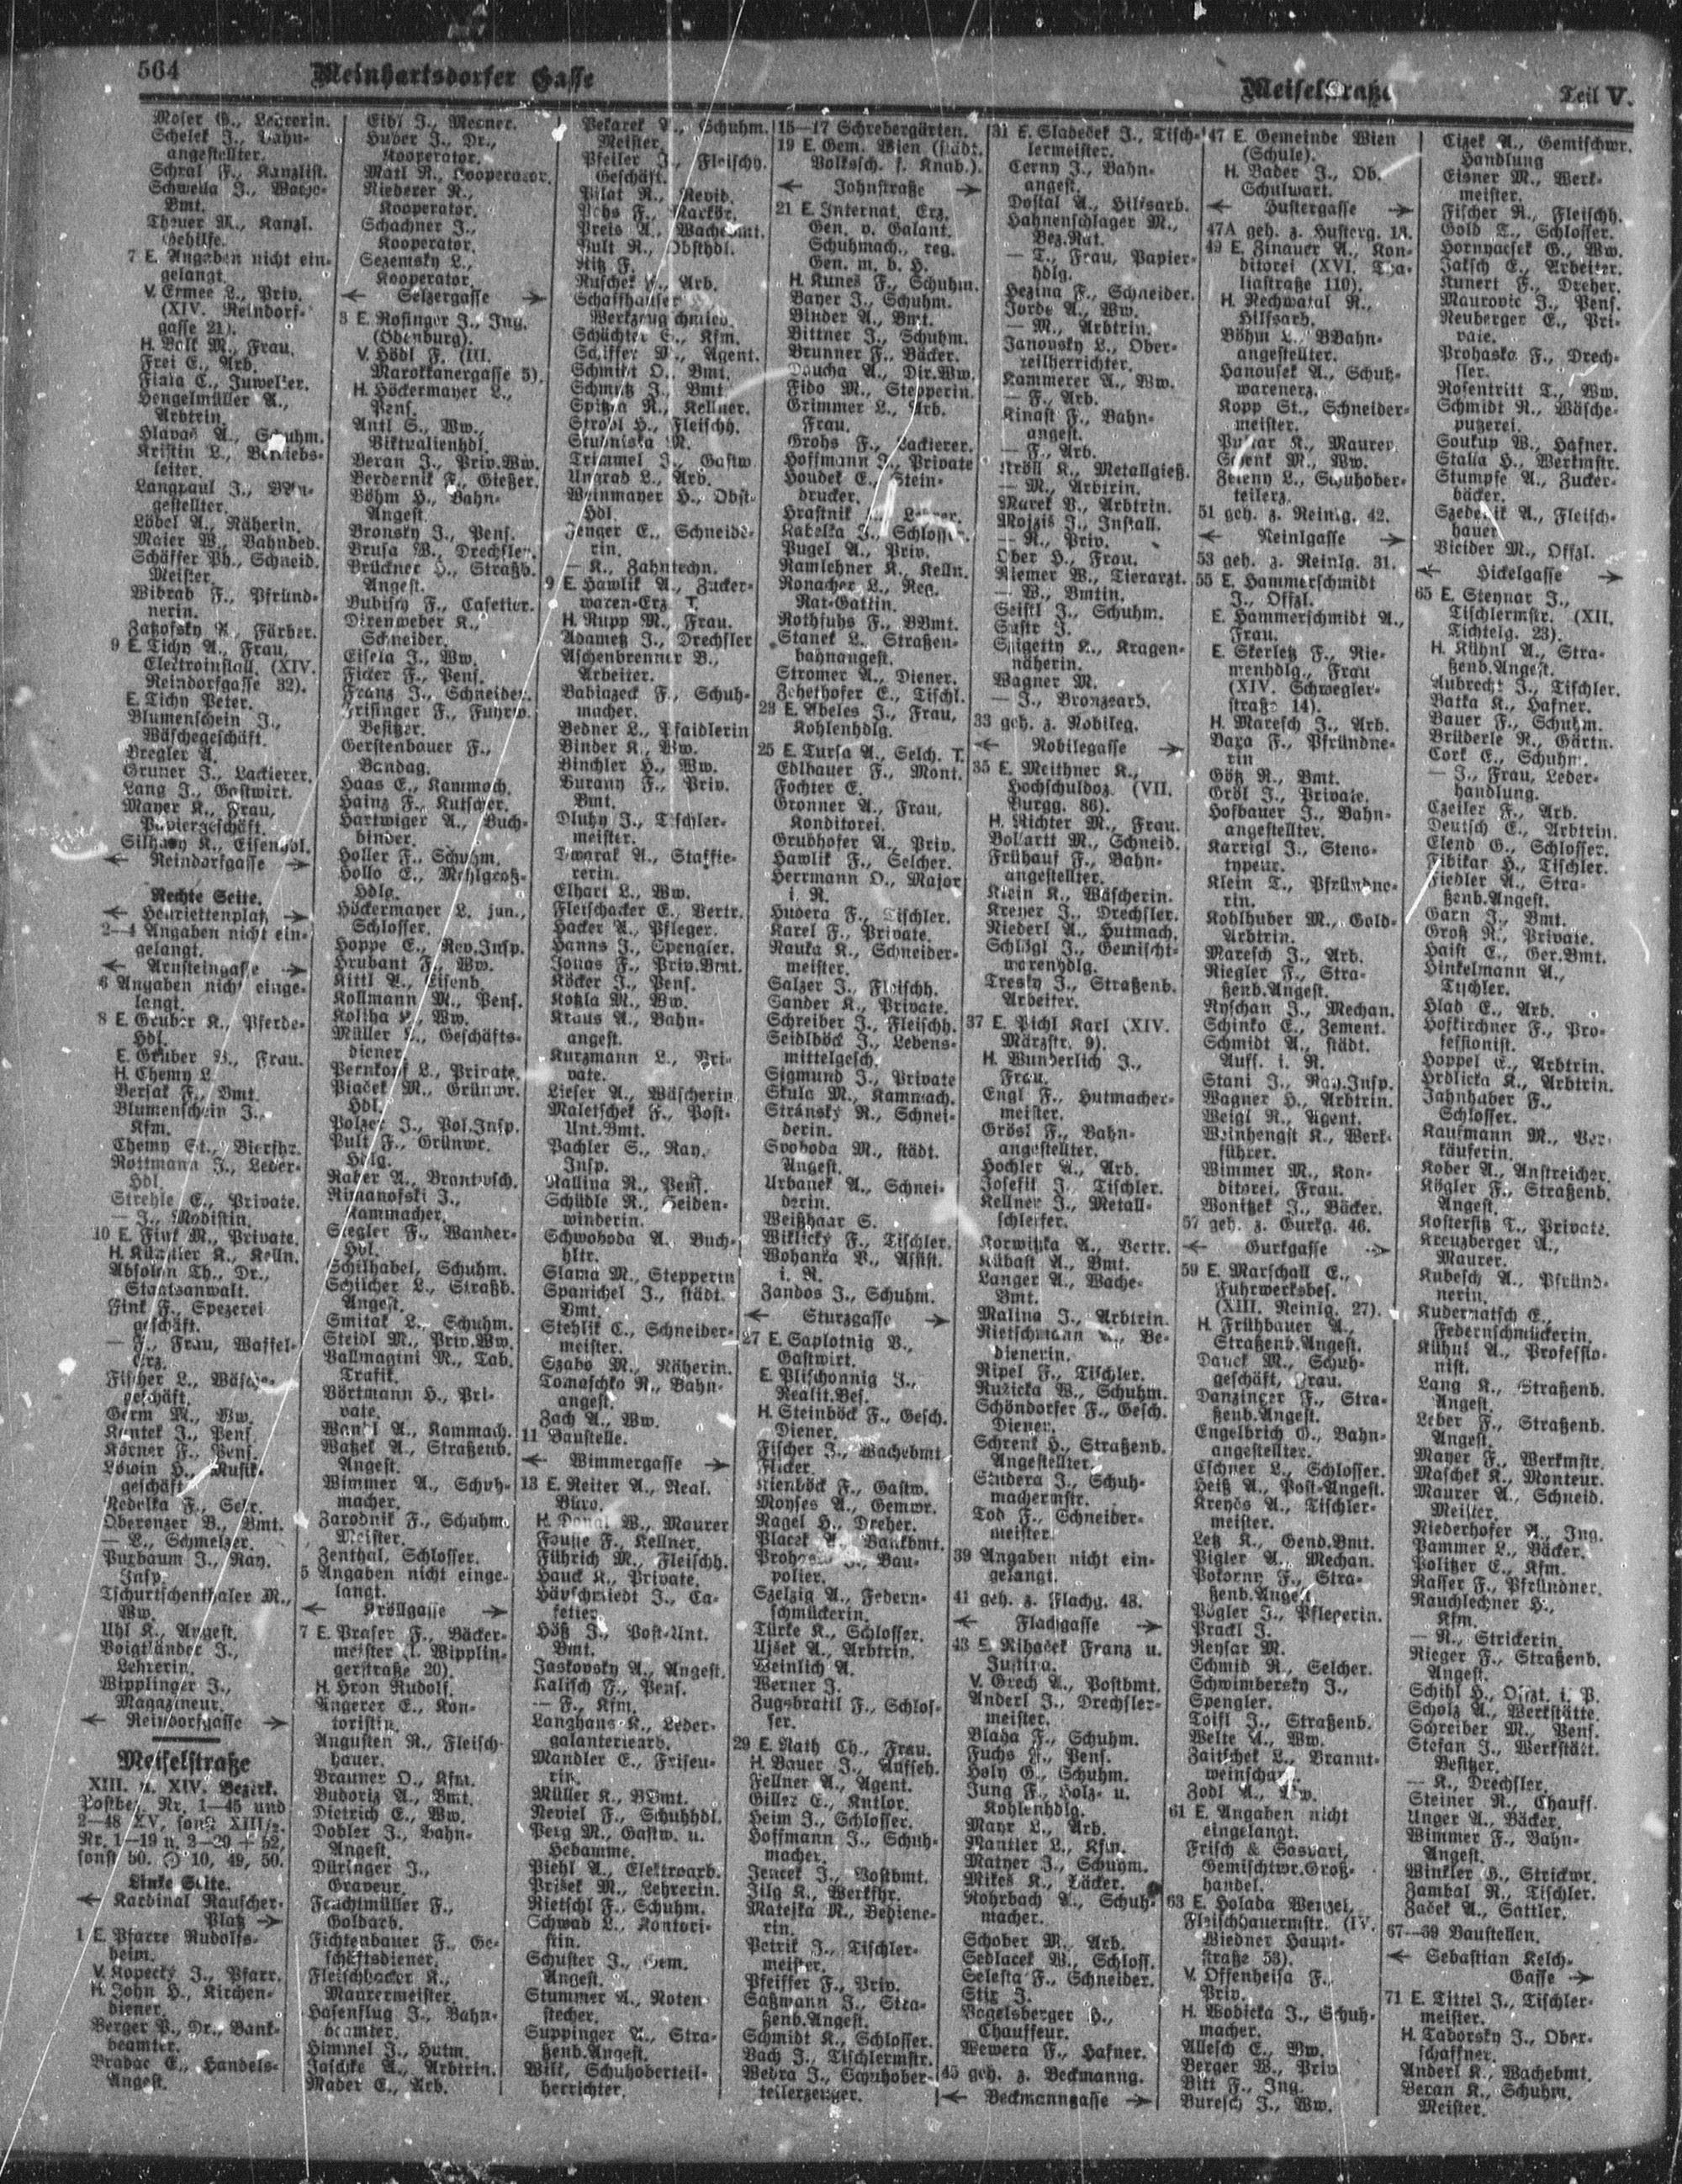 564
Meinhartsdorfer Gasse
Meiselstraße
Teil V.
Moser G., Lehrerin.
Schelek J., Bahn-
angestellter.
Schral F., Kanzlist.
Schweila J., Wache-
Bmt.
Theuer M., Kanzl.
Gehilfe.
7 E. Angaben nicht ein-
gelangt.
V. Ermee L., Priv.
(XIV. Reindorf-
gasse 21).
H. Volk M., Frau.
Frei E., Arb.
Fiala C., Juwelier.
Hengelmüller A.,
Arbtrin.
Hlavac A., Schuhm.
Kristin L., Betriebs-
leiter.
Langpaul J., BBan-
gestellter.
Löbel A., Näherin.
Maier W., Bahnbed.
Schäffer Ph., Schneid.
Meister.
Wibrad F., Pfründ-
nerin.
Zatzofsky R., Färber.
9 E. Tichy A., Frau,
Elektroinstall. (XIV.
Reindorfgasse 32).
E. Tichy Peter.
Blumenschein J.,
Wäschegeschäft.
Bregler A.
Gruner J., Lackierer.
Lang J., Gastwirt.
Mayer K., Frau,
Papiergeschäft.
Silhavy K., Eisenhdl.
← Reindorfgasse →
Rechte Seite.
← Henriettenplatz →
2—4 Angaben nicht ein-
gelangt.
← Arnsteingasse →
6 Angaben nicht einge-
langt.
8 E. Gruber K., Pferde-
Hdl.
E. Gruber B., Frau.
H. Chemy L.
Bersak F., Bmt.
Blumenschein J.,
Kfm.
Chemy St., Bierfhr.
Rottmann J., Leder-
Hdl.
Strehle E., Private.
— J., Modistin.
10 E. Fink M., Private.
H. Künstler K., Kelln.
Absolon Th., Dr.,
Staatsanwalt.
Fink F., Spezerei
geschäft.
— J., Frau, Waffel-
Erz.
Fischer L., Wäsche-
geschäft.
Germ M., Ww.
Kantek J., Pens.
Körner F., Pens.
Löwin H., Musik-
geschäft.
Nedelka F., Sekr.
Oberenzer B., Bmt.
— L., Schmelzer.
Purbaum J., Ray.
Insp.
Tschurtschenthaler M.,
Ww.
Uhl K., Angest.
Voigtländer J.,
Lehrerin.
Wipplinger J.,
Magazineur.
← Reindorfgasse →
Meiselstraße
XIII. u. XIV. Bezirk.
Postbez. Nr. 1—45 und
2—48 XV, sonst XIII/2.
Nr. 1—19 u. 2—20 + 52,
sonst 50. 10, 49, 50.
Linke Seite.
← Kardinal Rauscher-
Platz →
1 E. Pfarre Rudolfs-
heim.
V. Kopecky J., Pfarr.
H. John H., Kirchen-
diener.
Berger P., Dr., Bank-
beamter.
Bradac E., Handels-
Angest.
Eibl J., Mesner.
Huber J., Dr.,
Kooperator.
Matl R., Kooperator.
Niederer R.,
Kooperator.
Schachner J.,
Kooperator.
Sezemsky L.,
Kooperator.
← Selzergasse →
3 E. Rosinger J., Ing.
(Ödenburg).
V. Hödl F. (III.
Marokkanergasse 5).
H. Höckermayer L.,
Pens.
Antl S., Ww.,
Viktualienhdl.
Beran J., Priv.Ww.
Berdernik F., Gießer.
Böhm H., Bahn-
Angest.
Bronsky J., Pens.
Brusa W., Drechsler.
Brückner H., Straßb.
Angest.
Bubisch F., Cafetier.
Direnweber K.,
Schneider.
Eisela J., Ww.
Ficker F., Pens.
Franz J., Schneider.
Frisinger F., Fuhrw.
Besitzer.
Gerstenbauer F.,
Bandag.
Haas E., Kammach.
Hainz F., Kutscher.
Hartwiger A., Buch-
binder.
Holler F., Schuhm.
Hollo E., Mehlgroß-
Hdlg.
Höckermayer L. jun.,
Schlosser.
Hoppe E., Rev.Insp.
Hrubant F., Ww.
Kittl A., Eisenb.
Kollmann M., Pens.
Koliha K., Ww.
Müller L., Geschäfts-
diener.
Pernkopf L., Private.
Piacek M., Grünwr.
Hdl.
Polzer J., Pol.Insp.
Pult F., Grünwr.
Hdlg.
Raker A., Brantwsch.
Rimanofski J.,
Kammacher.
Siegler F., Wander-
Hdl.
Schilhabel, Schuhm.
Schilcher L., Straßb.
Angest.
Smitak L., Schuhm.
Steidl M., Priv.Ww.
Vallmagini R., Tab.
Trafik.
Vörtmann H., Pri-
vate.
Wandl A., Kammach.
Watzek A., Straßenb.
Angest.
Wimmer A., Schuh-
macher.
Zarodnik F., Schuhm.
Meister.
Zenthal, Schlosser.
5 Angaben nicht einge-
langt.
← Kröllgasse →
7 E. Praser F., Bäcker-
meister (I. Wipplin-
gerstraße 20).
H. Hron Rudolf.
Angerer E., Kon-
toristin.
Augusten R., Fleisch-
hauer.
Brauner O., Kfm.
Budoriz A., Bmt.
Dietrich E., Ww.
Dobler J., Bahn-
Angest.
Düringer J.,
Graveur.
Feuchtmüller F.,
Goldarb.
Fichtenbauer F., Ge-
schäftsdiener.
Fleischhacker K.,
Maurermeister.
Hasenflug J., Bahn-
beamter.
Himmel J., Hutm.
Jaschke A., Arbtrin.
Mader E., Arb.
Pekarek V., Schuhm.
Meister.
Pfeiler J., Fleischh.
Geschäft.
Pilat R., Revid.
Pohs F., Markör.
Preis A., Wachebmt.
Pult R., Obsthdl.
Ritz F.
Ruschek F., Arb.
Schaffhauser
Werkzeugschmied.
Schächter S., Kfm.
Schiffer M., Agent.
Schmidt O., Bmt.
Schmutz J., Bmt.
Spitzka R., Kellner.
Strobl H., Fleischh.
Stubniska R.
Trimmel J., Gastw.
Ungrad L., Arb.
Weinmayer H., Obst-
Hdl.
Zenger E., Schneide-
rin.
— K., Zahntechn.
9 E. Hawlik A., Zucker-
waren-Erz. T.
H. Rupp M., Frau.
Adametz J., Drechsler
Aschenbrenner B.,
Arbeiter.
Babinzeck F., Schuh-
macher.
Bedner L., Pfaidlerin
Binder K., Ww.
Binchler H., Ww.
Burany F., Priv.
Bmt.
Dluhy J., Tischler-
meister.
Dworak A., Staffie-
rerin.
Elhart L., Ww.
Fleischacker E., Vertr.
Hacker A., Pfleger.
Hanns J., Spengler.
Jonas F., Priv.Bmt.
Köcker J., Pens.
Kotzla M., Ww.
Kraus A., Bahn-
angest.
Kurzmann L., Pri-
vate.
Lieser A., Wäscherin
Maletschek F., Post-
Unt.Bmt.
Pachler S., Ray.
Insp.
Rallina R., Pens.
Schüdle R., Seiden-
winderin.
Schwoboda A., Buch-
hltr.
Slama M., Stepperin
Spanichel J., städt.
Bmt.
Stehlik C., Schneider-
meister.
Szabo M., Näherin.
Tomaschko R., Bahn-
angest.
Zach A., Ww.
11 Baustelle.
← Wimmergasse →
13 E. Reiter A., Real.
Büro.
H. Donal W., Maurer
Fousje F., Kellner.
Führich M., Fleischh.
Hauck K., Private.
Häuschmiedt J., Ca-
fetier.
Höß J., Post-Unt.
Bmt.
Jaskovsky A., Angest.
Kalisch F., Pens.
— F., Kfm.
Langhans K., Leder-
galanteriearb.
Mandler E., Friseu-
rin.
Müller K., BBmt.
Neviel F., Schuhhdl.
Perg M., Gastw. u.
Hebamme.
Piehl A., Elektroarb.
Prisek M., Lehrerin.
Rietschl F., Schuhm.
Schwab L., Kontori-
stin.
Schuster J., Gem.
Angest.
Stummer A., Noten
stecher.
Suppinger A., Stra-
ßenb.Angest.
Wilt, Schuhoberteil-
herrichter.
15—17 Schrebergärten.
19 E. Gem. Wien (städt.
Volkssch. f. Knab.).
← Johnstraße →
21 E. Internat. Erz.
Gen. v. Galant.
Schuhmach., reg.
Gen. m. b. H.
H. Kunes F., Schuhm.
Bayer J., Schuhm.
Binder A., Bmt.
Bittner J., Schuhm.
Brunner F., Bäcker.
Doucha A., Dir.Ww.
Fido M., Stepperin.
Grimmer L., Arb.
Frau.
Grohs F., Lackierer.
Hoffmann J., Private
Houdek E., Stein-
drucker.
Hrastnik M., Lehrer.
Kabelka J., Schlosser.
Pugel A., Priv.
Ramlehner K., Kelln.
Ronacher L., Reg.
Rat-Gattin.
Rothfuhs F., BBmt.
Stanek L., Straßen-
bahnangest.
Stromer A., Diener.
Zehethofer E., Tischl.
23 E. Abeles J., Frau,
Kohlenhdlg.
25 E. Tursa A., Selch. T.
Edlbauer F., Mont.
Fochter E.
Gronner A., Frau,
Konditorei.
Grubhofer A., Priv.
Hawlik F., Selcher.
Herrmann O., Major
i. R.
Hudera F., Tischler.
Karel F., Private.
Nauka K., Schneider-
meister.
Salzer J., Fleischh.
Sander K., Private.
Schreiber J., Fleischh.
Seidlböck J., Lebens-
mittelgesch.
Sigmund J., Private
Skula M., Kammach.
Stránský R., Schnei-
derin.
Svoboda M., städt.
Angest.
Urbanek A., Schnei-
derin.
Weißhaar S.
Wiklicky F., Tischler.
Wohanka V., Assist.
i. R.
Zandos J., Schuhm.
← Sturzgasse →
27 E. Saplotnig V.,
Gastwirt.
E. Plischonnig J.,
Realit.Bes.
H. Steinböck F., Gesch.
Diener.
Fischer J., Wachebmt
Flicker.
Kienböck F., Gastw.
Moyses A., Gemwr.
Nagel H., Dreher.
Placek A., Bankbmt.
Prohaska J., Bau-
polier.
Szelzig A., Federn-
schmückerin.
Türke K., Schlosser.
Ujsek A., Arbtrin.
Weinlich A.
Werner J.
Zugsbratil F., Schlos-
ser.
29 E. Rath Ch., Frau.
H. Bauer J., Aufseh.
Fellner A., Agent.
Giller E., Kntlor.
Heim J., Schlosser.
Hoffmann J., Schuh-
macher.
Jencek J., Postbmt.
Jilg K., Werkfhr.
Mateska R., Bediene-
rin.
Petrik J., Tischler-
meister.
Pfeiffer F., Priv.
Saßmann J., Stra-
ßenb.Angest.
Schmidt K., Schlosser.
Vach J., Tischlermstr.
Wedra J., Schuhober-
teilerzeuger.
31 E. Sladecek J., Tisch-
lermeister.
Cerny J., Bahn-
angest.
Dostal A., Hilfsarb.
Hahnenschlager M.,
Bez.Rat.
— T., Frau, Papier-
hdlg.
Hezina F., Schneider.
Jorde A., Ww.
— M., Arbtrin.
Janovsky L., Ober-
teilherrichter.
Kammerer A., Ww.
— F., Arb.
Kinast F., Bahn-
angest.
— F., Arb.
Kröll K., Metallgieß.
— M., Arbtrin.
Marek P., Arbtrin.
Mojzis J., Install.
— R., Priv.
Ober H., Frau.
Riemer W., Tierarzt.
— W., Bmtin.
Seistl J., Schuhm.
Sustr J.
Szigetty K., Kragen-
näherin.
Wagner M.
— J., Bronzearb.
33 geh. z. Nobileg.
← Nobilegasse →
35 E. Meithner K.,
Hochschuldoz. (VII.
Burgg. 86).
H. Richter M., Frau.
Bollartt M., Schneid.
Frühauf F., Bahn-
angestellter.
Klein K., Wäscherin.
Kreyer J., Drechsler.
Niederl A., Hutmach.
Schlögl J., Gemischt-
warenhdlg.
Tresky J., Straßenb.
Arbeiter.
37 E. Pichl Karl (XIV.
Märzstr. 9).
H. Wunderlich J.,
Frau.
Engl F., Hutmacher-
meister.
Grösl F., Bahn-
angestellter.
Hochler A., Arb.
Josefik J., Tischler.
Kellner J., Metall-
schleifer.
Korwitzka A., Vertr.
Kübast A., Bmt.
Langer A., Wache-
Bmt.
Malina J., Arbtrin.
Rietschmann A., Be-
dienerin.
Ripel F., Tischler.
Ruzicka W., Schuhm.
Schöndorfer F., Gesch.
Diener.
Schrenk H., Straßenb.
Angestellter.
Studera J., Schuh-
machermstr.
Tod F., Schneider-
meister.
39 Angaben nicht ein-
gelangt.
41 geh. z. Flachg. 48.
← Flachgasse →
43 E. Rihacek Franz u.
Justina.
V. Grech A., Postbmt.
Anderl J., Drechsler-
meister.
Blaha F., Schuhm.
Fuchs A., Pens.
Holy G., Schuhm.
Jung F., Holz- u.
Kohlenhdlg.
Mayr L., Arb.
Mantler L., Kfm.
Matyer J., Schuhm.
Mikes K., Bäcker.
Rohrbach A., Schuh-
macher.
Schober M., Arb.
Sedlacek W., Schloss.
Selesta F., Schneider.
Stix J.
Vogelsberger H.,
Chauffeur.
Wewera F., Hafner.
45 geh. z. Beckmanng.
← Beckmanngasse →
47 E. Gemeinde Wien
(Schule).
H. Bader J., Ob.
Schulwart.
← Hustergasse →
47A geh. z. Husterg. 1A.
49 E. Zinauer A., Kon-
ditorei (XVI. Tha-
liastraße 110).
H. Nechwatal R.,
Hilfsarb.
Böhm L., BBahn-
angestellter.
Hanousek A., Schuh-
warenerz.
Kopp St., Schneider-
meister.
Puhar K., Maurer.
Schenk M., Ww.
Zeleny L., Schuhober-
teilerz.
51 geh. z. Reinlg. 42.
← Reinlgasse →
53 geh. z. Reinlg. 31.
55 E. Hammerschmidt
J., Offzl.
E. Hammerschmidt A.,
Frau.
E. Skerletz F., Rie-
menhdlg., Frau
(XIV. Schwegler-
straße 14).
H. Maresch J., Arb.
Baxa F., Pfründne-
rin
Götz R., Bmt.
Gröl J., Private.
Hofbauer J., Bahn-
angestellter.
Karrigl J., Steno-
typeur.
Klein T., Pfründne-
rin.
Kohlhuber M., Gold-
Arbtrin.
Maresch J., Arb.
Riegler F., Stra-
ßenb.Angest.
Ryschan J., Mechan.
Schinko E., Zement.
Schmidt A., städt.
Auff. i. R.
Stani J., Ray.Insp.
Wagner H., Arbtrin.
Weigl R., Agent.
Weinhengst K., Werk-
führer.
Wimmer M., Kon-
ditorei, Frau.
Wonitzek J., Bäcker.
57 geh. z. Gurkg. 46.
← Gurkgasse →
59 E. Marschall E.,
Fuhrwerksbes.
(XIII. Reinlg. 27).
H. Frühbauer A.,
Straßenb.Angest.
Dauck M., Schuh-
geschäft, Frau.
Danzinger F., Stra-
ßenb.Angest.
Engelbrich G., Bahn-
angestellter.
Eschner L., Schlosser.
Heiß A., Post-Angest.
Kreycs A., Tischler-
meister.
Letz K., Gend.Bmt.
Pigler A., Mechan.
Pokorny F., Stra-
ßenb.Angest.
Pögler J., Pflegerin.
Prackl J.
Reysar M.
Schmid R., Selcher.
Schwimbersky J.,
Spengler.
Toifl J., Straßenb.
Welte A., Ww.
Zaitschek L., Brannt-
weinschank.
Zodl A., Ww.
61 E. Angaben nicht
eingelangt.
Frisch & Gasvari,
Gemischtwr.Groß-
handel.
63 E. Holada Wenzel,
Fleischhauermstr. (IV.
Wiedner Haupt-
straße 53).
V. Offenheisa F.,
Priv.
H. Wobicka J., Schuh-
macher.
Allesch E., Ww.
Berger W., Priv.
Bitt F., Ing.
Buresch J., Ww.
Cizek A., Gemischwr.
Handlung
Eisner M., Werk-
meister.
Fischer R., Fleischh.
Gold T., Schlosser.
Hornyacsek G., Ww.
Jaksch E., Arbeiter.
Kunert F., Dreher.
Maurovic J., Pens.
Neuberger E., Pri-
vate.
Prohaska F., Drech-
sler.
Rosentritt T., Ww.
Schmidt R., Wäsche-
putzerei.
Soukup W., Hafner.
Stalia H., Werkmstr.
Stumpfe A., Zucker-
bäcker.
Szederik A., Fleisch-
hauer
Vicider M., Offzl.
← Hickelgasse →
65 E. Steynar J.,
Tischlermstr. (XII.
Tichtelg. 23).
H. Kühnl A., Stra-
ßenb.Angest.
Aubrecht J., Tischler.
Batka K., Hafner.
Bauer F., Schuhm.
Brüderle R., Gärtn.
Cork E., Schuhm.
— J., Frau, Leder-
handlung.
Czeiler F., Arb.
Deutsch E., Arbtrin.
Elend G., Schlosser.
Fibikar H., Tischler.
Fiedler A., Stra-
ßenb.Angest.
Garn J., Bmt.
Groß R., Private.
Haist E., Ger.Bmt.
Hinkelmann A.,
Tischler.
Hlad E., Arb.
Hofkirchner F., Pro-
fessionist.
Hoppel E., Arbtrin.
Hrdlicka K., Arbtrin.
Jahnhaber F.,
Schlosser.
Kaufmann M., Ver-
käuferin.
Kober A., Anstreicher.
Kögler F., Straßenb.
Angest.
Kostersitz T., Private.
Kreuzberger A.,
Maurer.
Kubesch A., Pfründ-
nerin.
Kudernatsch E.,
Federnschmückerin.
Kühnl A., Professio-
nist.
Lang K., Straßenb.
Angest.
Leber F., Straßenb.
Angest.
Mayer F., Werkmstr.
Maschek K., Monteur.
Maurer A., Schneid.
Meister.
Niederhofer A., Ing.
Pammer L., Bäcker.
Politzer E., Kfm.
Rasser F., Pfründner.
Rauchlechner H.,
Kfm.
— R., Strickerin.
Rieger F., Straßenb.
Angest.
Schihl H., Offzt. i. P.
Scholz A., Werkstätte.
Schreiber M., Pens.
Stefan J., Werkstätt.
Besitzer.
— K., Drechsler.
Steiner R., Chauff.
Unger A., Bäcker.
Wimmer F., Bahn-
Angest.
Winkler G., Strickwr.
Zambal R., Tischler.
Zacek A., Sattler.
67—69 Baustellen.
← Sebastian Kelch-
Gasse →
71 E. Tittel J., Tischler-
meister.
H. Taborsky J., Ober-
schaffner.
Anderl K., Wachebmt.
Beran K., Schuhm.
Meister.